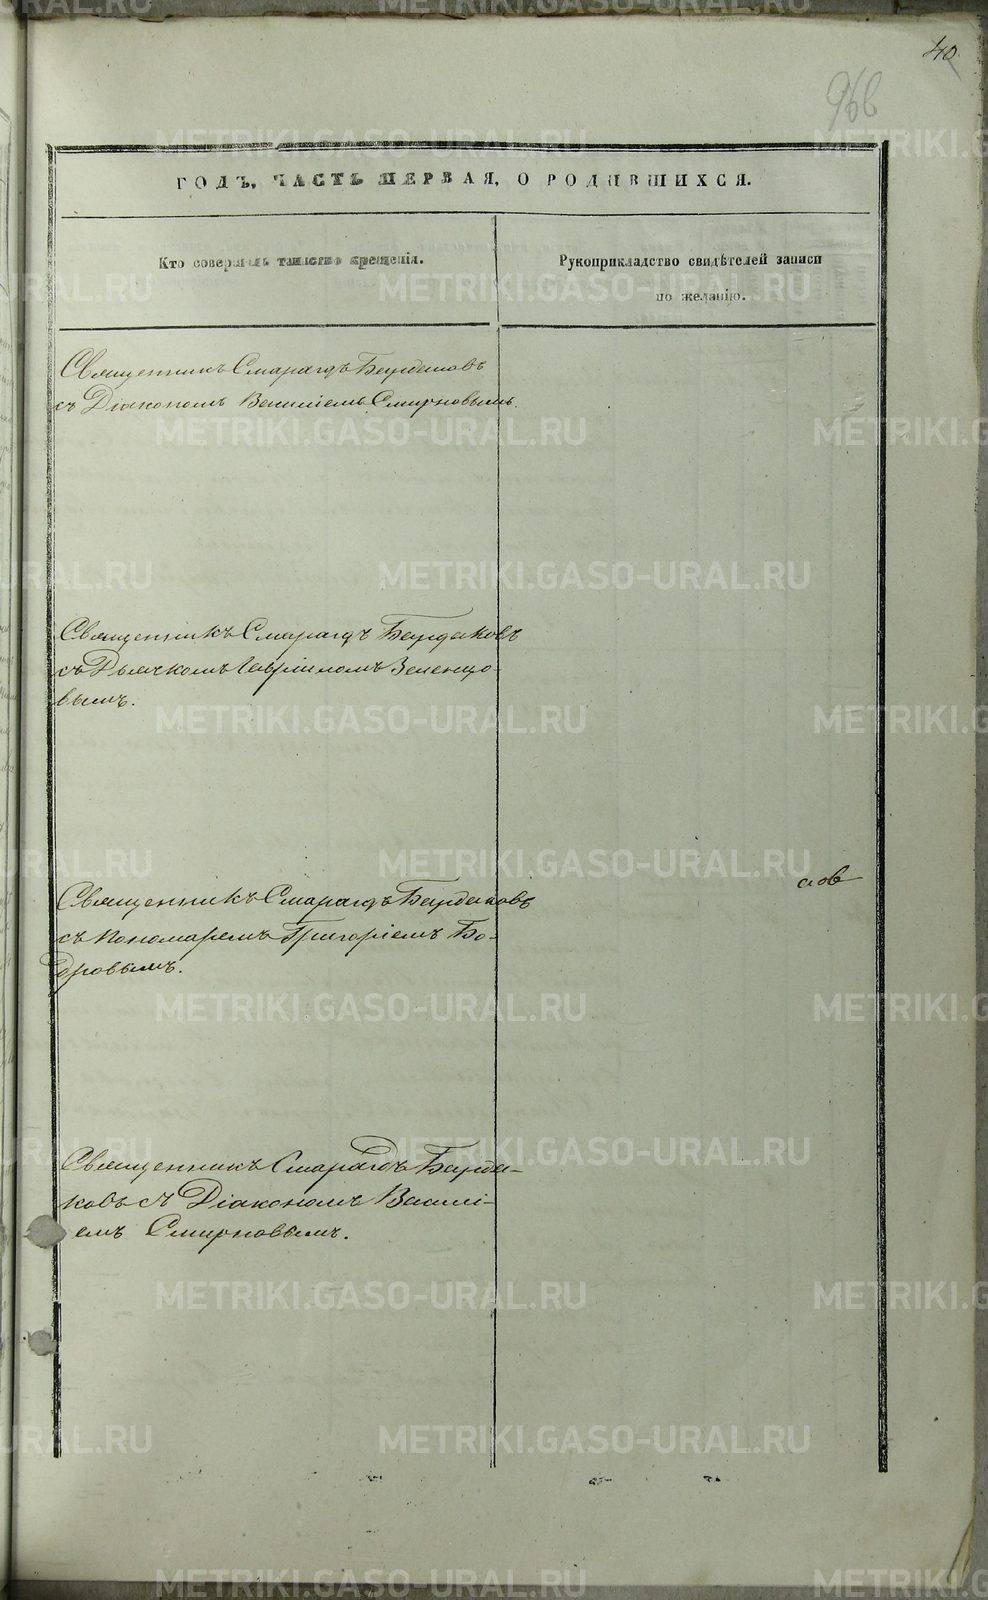 40
968
ГОДЪ, ЧАСТЬ ПЕРВАЯ, О РОДИВШИХСЯ.
Кто совершалъ таинство крещенія.
Рукоприкладство свидѣтелей записи
по желанію.
Священникъ Смарагдъ Бурдаковъ
съ Діакономъ Василіемъ Смирновымъ.
Священникъ Смарагдъ Бурдаковъ
съ Дьячкомъ Гавріиломъ Зеленцо-
вымъ.
Священникъ Смарагдъ Бурдаковъ
съ Пономаремъ Григоріемъ Бо-
дровымъ.
Священникъ Смарагдъ Бурда-
ковъ съ Діакономъ Василі-
емъ Смирновымъ.
METRIKI.GASO-URAL.RU